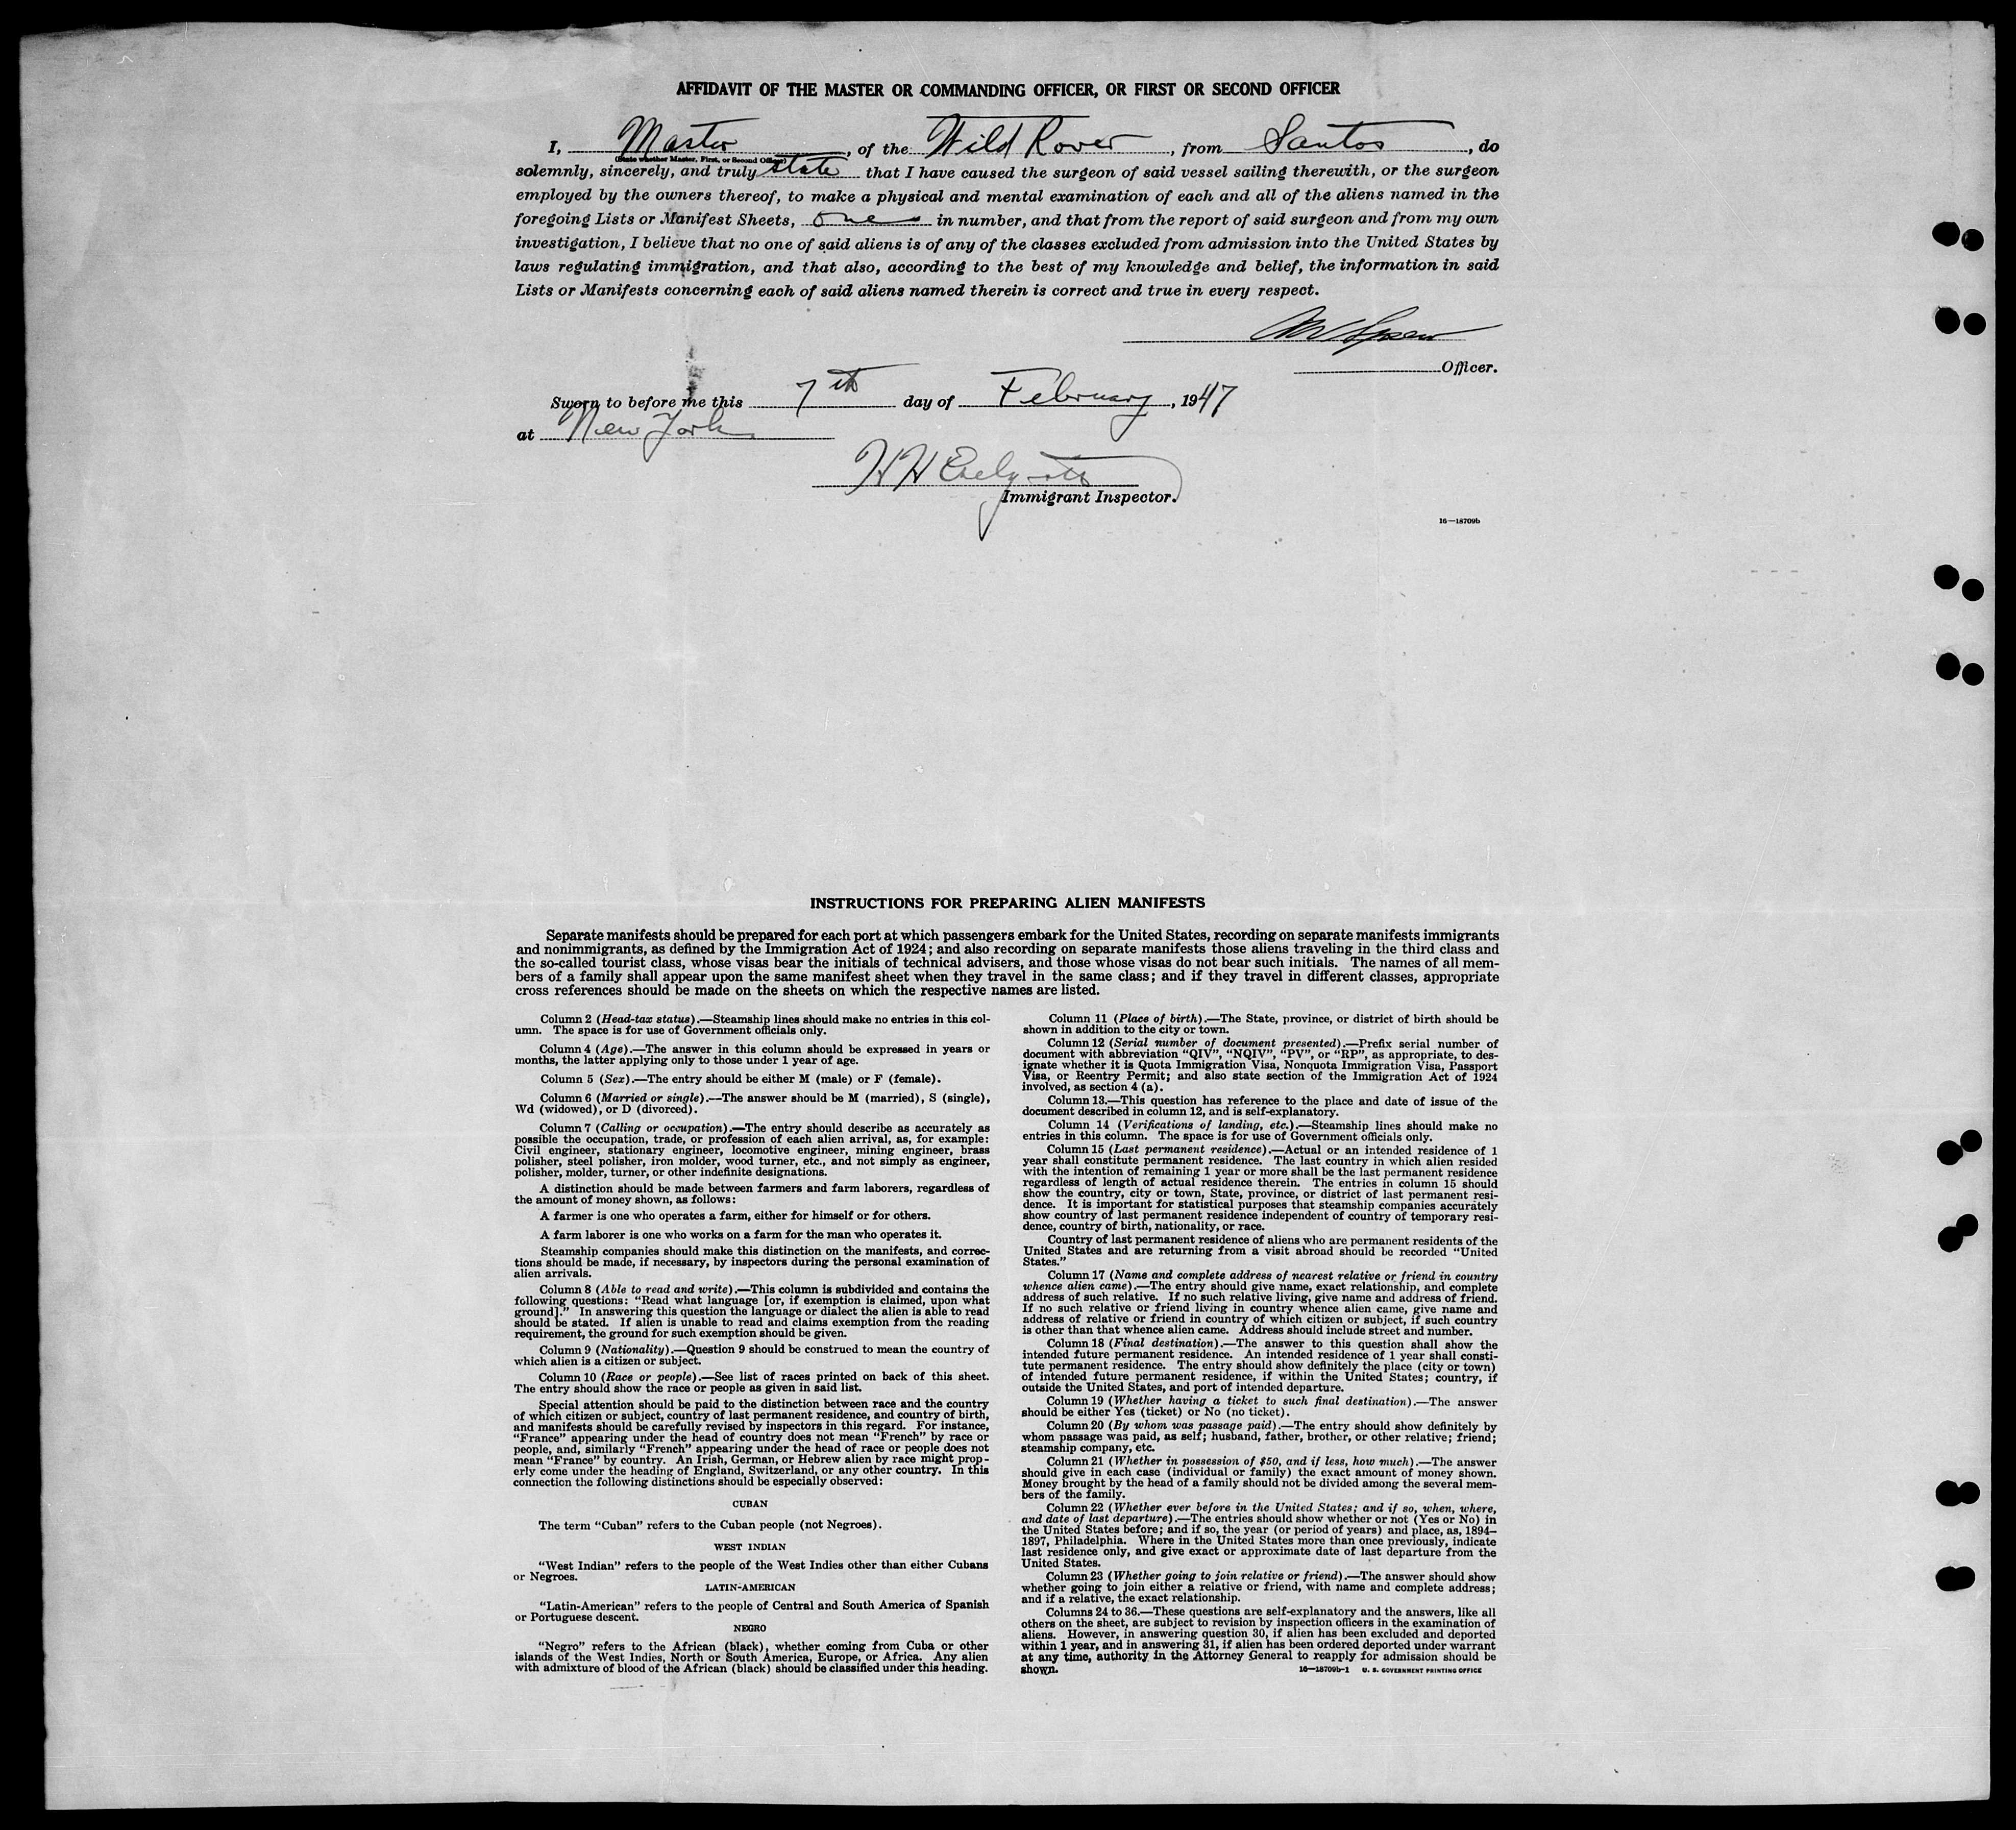 AFFIDAVIT OF THE MASTER OR COMMANDING OFFICER, OR FIRST OR SECOND OFFICER
I, Master, of the Wild Rover, from Santos, do
(State whether Master, First, or Second Officer)
solemnly, sincerely, and truly state that I have caused the surgeon of said vessel sailing therewith, or the surgeon
employed by the owners thereof, to make a physical and mental examination of each and all of the aliens named in the
foregoing Lists or Manifest Sheets, one in number, and that from the report of said surgeon and from my own
investigation, I believe that no one of said aliens is of any of the classes excluded from admission into the United States by
laws regulating immigration, and that also, according to the best of my knowledge and belief, the information in said
Lists or Manifests concerning each of said aliens named therein is correct and true in every respect.
Officer.
Sworn to before me this 7th day of February, 1947
at New York
H H
Immigrant Inspector.
16—18709b
INSTRUCTIONS FOR PREPARING ALIEN MANIFESTS
Separate manifests should be prepared for each port at which passengers embark for the United States, recording on separate manifests immigrants
and nonimmigrants, as defined by the Immigration Act of 1924; and also recording on separate manifests those aliens traveling in the third class and
the so-called tourist class, whose visas bear the initials of technical advisers, and those whose visas do not bear such initials. The names of all mem-
bers of a family shall appear upon the same manifest sheet when they travel in the same class; and if they travel in different classes, appropriate
cross references should be made on the sheets on which the respective names are listed.
Column 2 (Head-tax status).—Steamship lines should make no entries in this col-
umn. The space is for use of Government officials only.
Column 4 (Age).—The answer in this column should be expressed in years or
months, the latter applying only to those under 1 year of age.
Column 5 (Sex).—The entry should be either M (male) or F (female).
Column 6 (Married or single).—The answer should be M (married), S (single),
Wd (widowed), or D (divorced).
Column 7 (Calling or occupation).—The entry should describe as accurately as
possible the occupation, trade, or profession of each alien arrival, as, for example:
Civil engineer, stationary engineer, locomotive engineer, mining engineer, brass
polisher, steel polisher, iron molder, wood turner, etc., and not simply as engineer,
polisher, molder, turner, or other indefinite designations.
A distinction should be made between farmers and farm laborers, regardless of
the amount of money shown, as follows:
A farmer is one who operates a farm, either for himself or for others.
A farm laborer is one who works on a farm for the man who operates it.
Steamship companies should make this distinction on the manifests, and correc-
tions should be made, if necessary, by inspectors during the personal examination of
alien arrivals.
Column 8 (Able to read and write).—This column is subdivided and contains the
following questions: "Read what language [or, if exemption is claimed, upon what
ground]." In answering this question the language or dialect the alien is able to read
should be stated. If alien is unable to read and claims exemption from the reading
requirement, the ground for such exemption should be given.
Column 9 (Nationality).—Question 9 should be construed to mean the country of
which alien is a citizen or subject.
Column 10 (Race or people).—See list of races printed on back of this sheet.
The entry should show the race or people as given in said list.
Special attention should be paid to the distinction between race and the country
of which citizen or subject, country of last permanent residence, and country of birth,
and manifests should be carefully revised by inspectors in this regard. For instance,
"France" appearing under the head of country does not mean "French" by race or
people, and, similarly "French" appearing under the head of race or people does not
mean "France" by country. An Irish, German, or Hebrew alien by race might prop-
erly come under the heading of England, Switzerland, or any other country. In this
connection the following distinctions should be especially observed:
CUBAN
The term "Cuban" refers to the Cuban people (not Negroes).
WEST INDIAN
"West Indian" refers to the people of the West Indies other than either Cubans
or Negroes.
LATIN-AMERICAN
"Latin-American" refers to the people of Central and South America of Spanish
or Portuguese descent.
NEGRO
"Negro" refers to the African (black), whether coming from Cuba or other
islands of the West Indies, North or South America, Europe, or Africa. Any alien
with admixture of blood of the African (black) should be classified under this heading.
Column 11 (Place of birth).—The State, province, or district of birth should be
shown in addition to the city or town.
Column 12 (Serial number of document presented).—Prefix serial number of
document with abbreviation "QIV", "NQIV", "PV", or "RP", as appropriate, to des-
ignate whether it is Quota Immigration Visa, Nonquota Immigration Visa, Passport
Visa, or Reentry Permit; and also state section of the Immigration Act of 1924
involved, as section 4 (a).
Column 13.—This question has reference to the place and date of issue of the
document described in column 12, and is self-explanatory.
Column 14 (Verifications of landing, etc.).—Steamship lines should make no
entries in this column. The space is for use of Government officials only.
Column 15 (Last permanent residence).—Actual or an intended residence of 1
year shall constitute permanent residence. The last country in which alien resided
with the intention of remaining 1 year or more shall be the last permanent residence
regardless of length of actual residence therein. The entries in column 15 should
show the country, city or town, State, province, or district of last permanent resi-
dence. It is important for statistical purposes that steamship companies accurately
show country of last permanent residence independent of country of temporary resi-
dence, country of birth, nationality, or race.
Country of last permanent residence of aliens who are permanent residents of the
United States and are returning from a visit abroad should be recorded "United
States."
Column 17 (Name and complete address of nearest relative or friend in country
whence alien came).—The entry should give name, exact relationship, and complete
address of such relative. If no such relative living, give name and address of friend.
If no such relative or friend living in country whence alien came, give name and
address of relative or friend in country of which citizen or subject, if such country
is other than that whence alien came. Address should include street and number.
Column 18 (Final destination).—The answer to this question shall show the
intended future permanent residence. An intended residence of 1 year shall consti-
tute permanent residence. The entry should show definitely the place (city or town)
of intended future permanent residence, if within the United States; country, if
outside the United States, and port of intended departure.
Column 19 (Whether having a ticket to such final destination).—The answer
should be either Yes (ticket) or No (no ticket).
Column 20 (By whom was passage paid).—The entry should show definitely by
whom passage was paid, as self; husband, father, brother, or other relative; friend;
steamship company, etc.
Column 21 (Whether in possession of $50, and if less, how much).—The answer
should give in each case (individual or family) the exact amount of money shown.
Money brought by the head of a family should not be divided among the several mem-
bers of the family.
Column 22 (Whether ever before in the United States; and if so, when, where,
and date of last departure).—The entries should show whether or not (Yes or No) in
the United States before; and if so, the year (or period of years) and place, as, 1894–
1897, Philadelphia. Where in the United States more than once previously, indicate
last residence only, and give exact or approximate date of last departure from the
United States.
Column 23 (Whether going to join relative or friend).—The answer should show
whether going to join either a relative or friend, with name and complete address;
and if a relative, the exact relationship.
Columns 24 to 36.—These questions are self-explanatory and the answers, like all
others on the sheet, are subject to revision by inspection officers in the examination of
aliens. However, in answering question 30, if alien has been excluded and deported
within 1 year, and in answering 31, if alien has been ordered deported under warrant
at any time, authority in the Attorney General to reapply for admission should be
shown.
16—18709b-1 U. S. GOVERNMENT PRINTING OFFICE